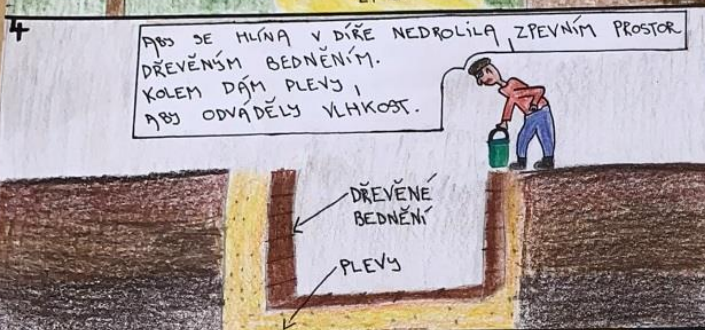 4
ABY SE HLÍNA V DÍŘE NEDROLILA, ZPEVNÍM PROSTOR
DŘEVĚNÝM BEDNĚNÍM.
KOLEM DÁM PLEVY,
ABY ODVÁDĚLY VLHKOST.
DŘEVĚNÉ
BEDNĚNÍ
PLEVY